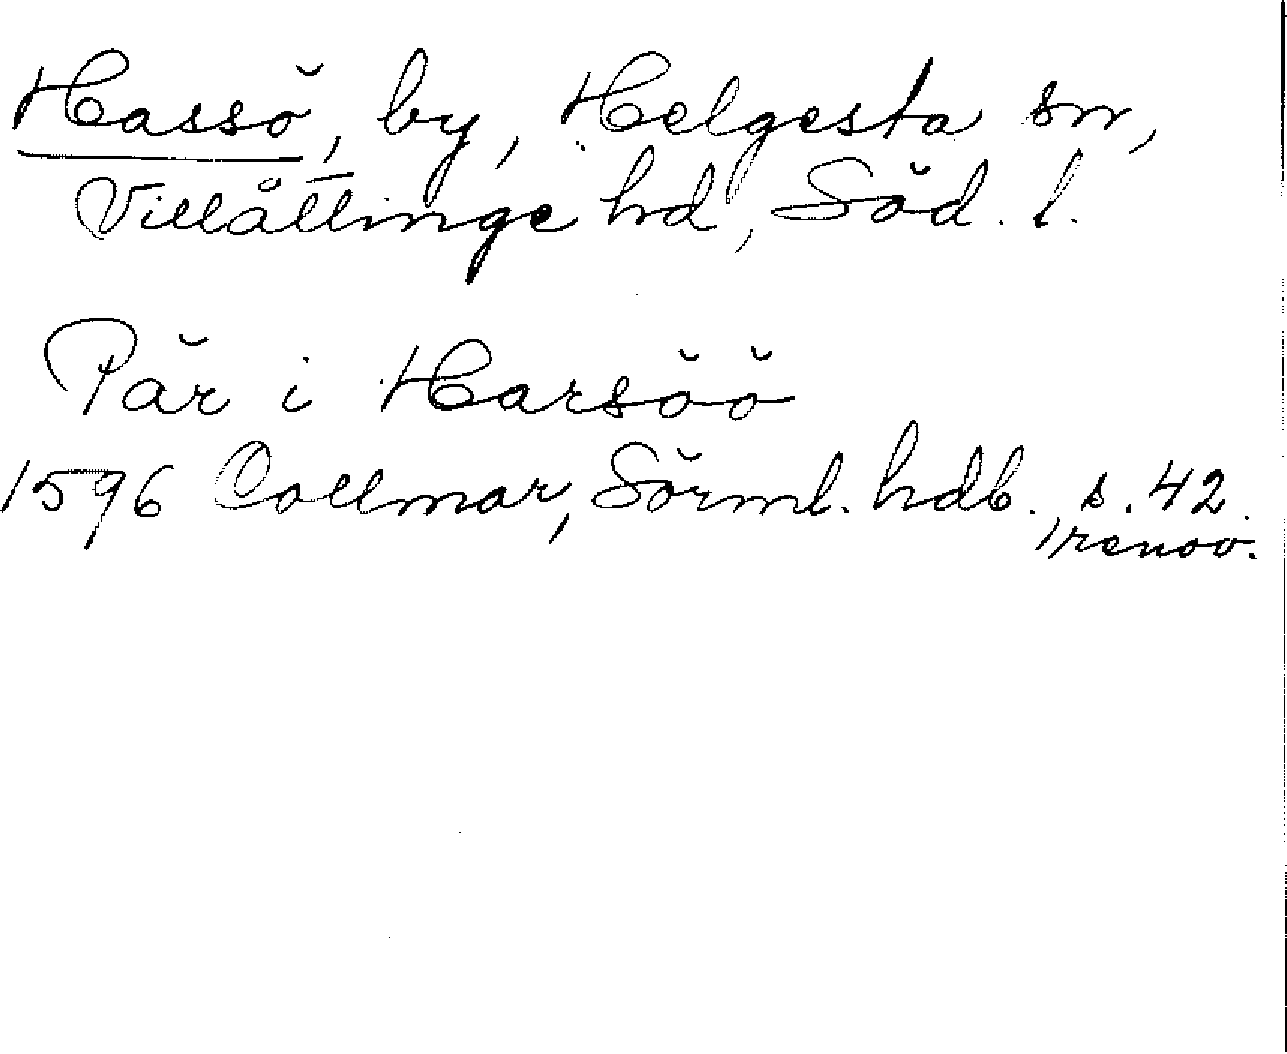 Hassö, by, Helgesta sn,
Villåttinge hd, Söd. l.
Pär i Harsöö
1596 Collmar, Sörml. hdb., s. 42.
renov.